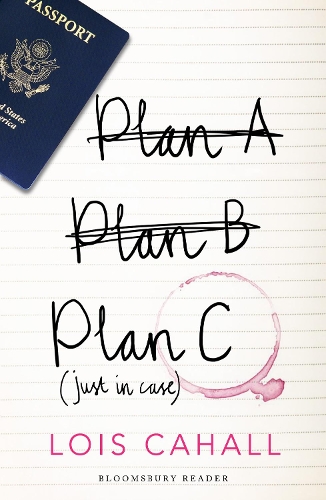 PASSPORT
d States
merica
Plan A
Plan B
Plan C
(just in case)
LOIS CAHALL
BLOOMSBURY READER